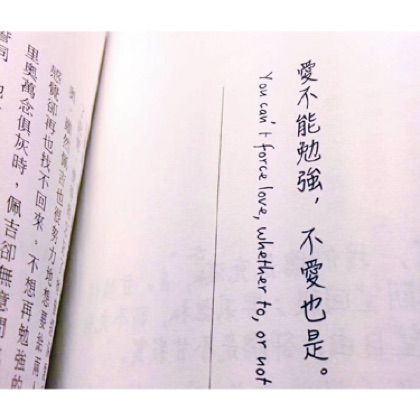 愛不能勉強，不愛也是。
You can't force love, whether to, or not
感覺卻再也找不回來。不想再勉強的
里奧萬念俱灰時，佩吉卻無意間